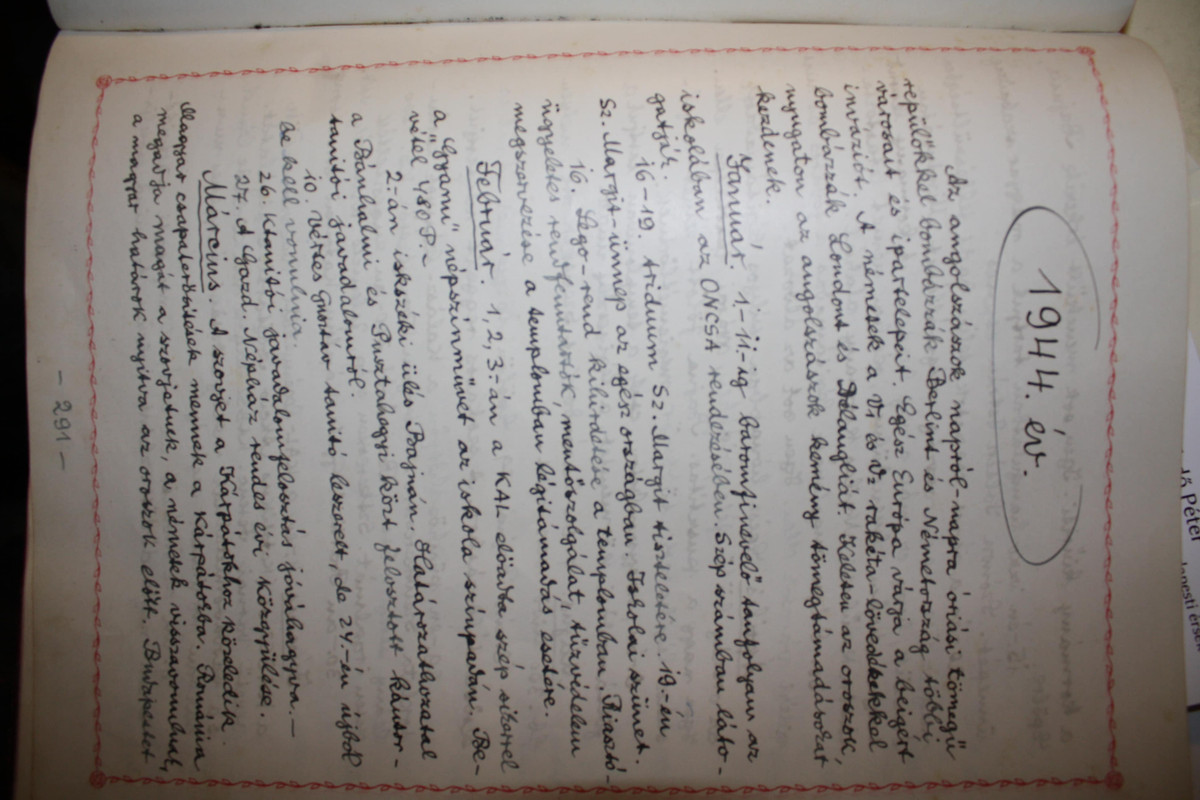 1944. év.
Az angolszászok napról-napra óriási tömegű
repülőkkel bombázzák Berlint és Németország többi
városait és ipartelepeit. Egész Európa várja a beigért
inváziót. A németek a V1 és V2 rakéta-lövedékekkel
bombázzák Londont és Délangliát. Keleten az oroszok,
nyugaton az angolszászok kemény tömegtámadásokat
kezdenek.
Január. 1-11-ig baromfinevelő tanfolyam az
iskolában az ONCSA rendezésében. Szép számban láto-
gatják.
16-19. triduum Sz. Margit tiszteletére. 19-én
Sz. Margit-ünnep az egész országban. Iskolai szünet.
16. Lego-rend kihirdetése a templomban. Riasztó-
ügyeletes rendfenntartók, mentőszolgálat, tűzvédelem
megszervezése a templomban légitámadás esetére.
Február. 1, 2, 3-án a KAL előadta szép sikerrel
a "Gyami" népszinművet az iskola színpadán. Be-
vétel 480 P.-
2.-án iskolszéki ülés Bajnán. Határozathozatal
a Bánhalmi és Pusztahegyi közt felosztott kántor-
tanítói javadalomról.
10. Vértes Gusztáv tanító leszerelt, de 24.-én újból
be kell vonulnia.
26. Ktanítói javadalomfelosztás jóváhagyva.-
27. A Gazd. Népház rendes évi Közgyűlése.
Március. A szovjet a Kárpátokhoz közeledik.
Magyar csapaterősítések mennek a Kárpátokba. Románia
megadja magát a szovjetnek, a németek visszavonulnak,
a magyar határok nyitva az oroszok előtt. Budapestet
- 291 -
ő Péter